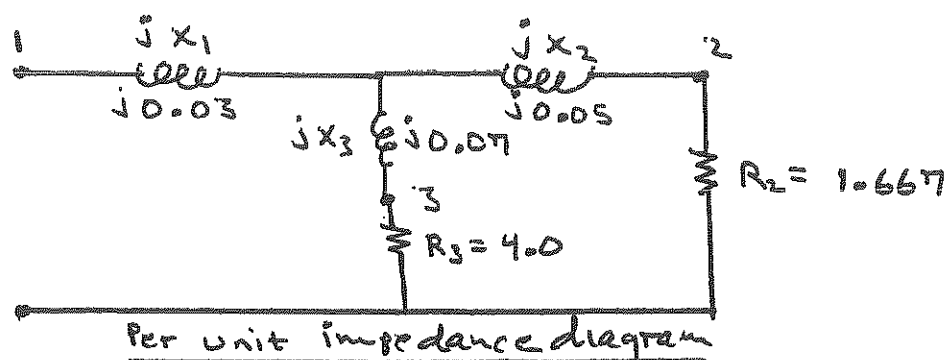 1
jX₁
j0.03
jX₂
j0.05
2
jX₃
j0.07
3
R₃ = 4.0
R₂ = 1.667
Per unit impedance diagram